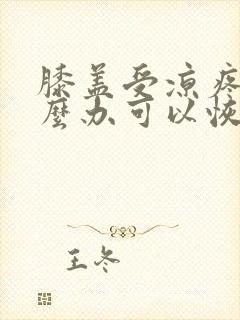 膝盖受凉疼
麽办可以恢
王冬